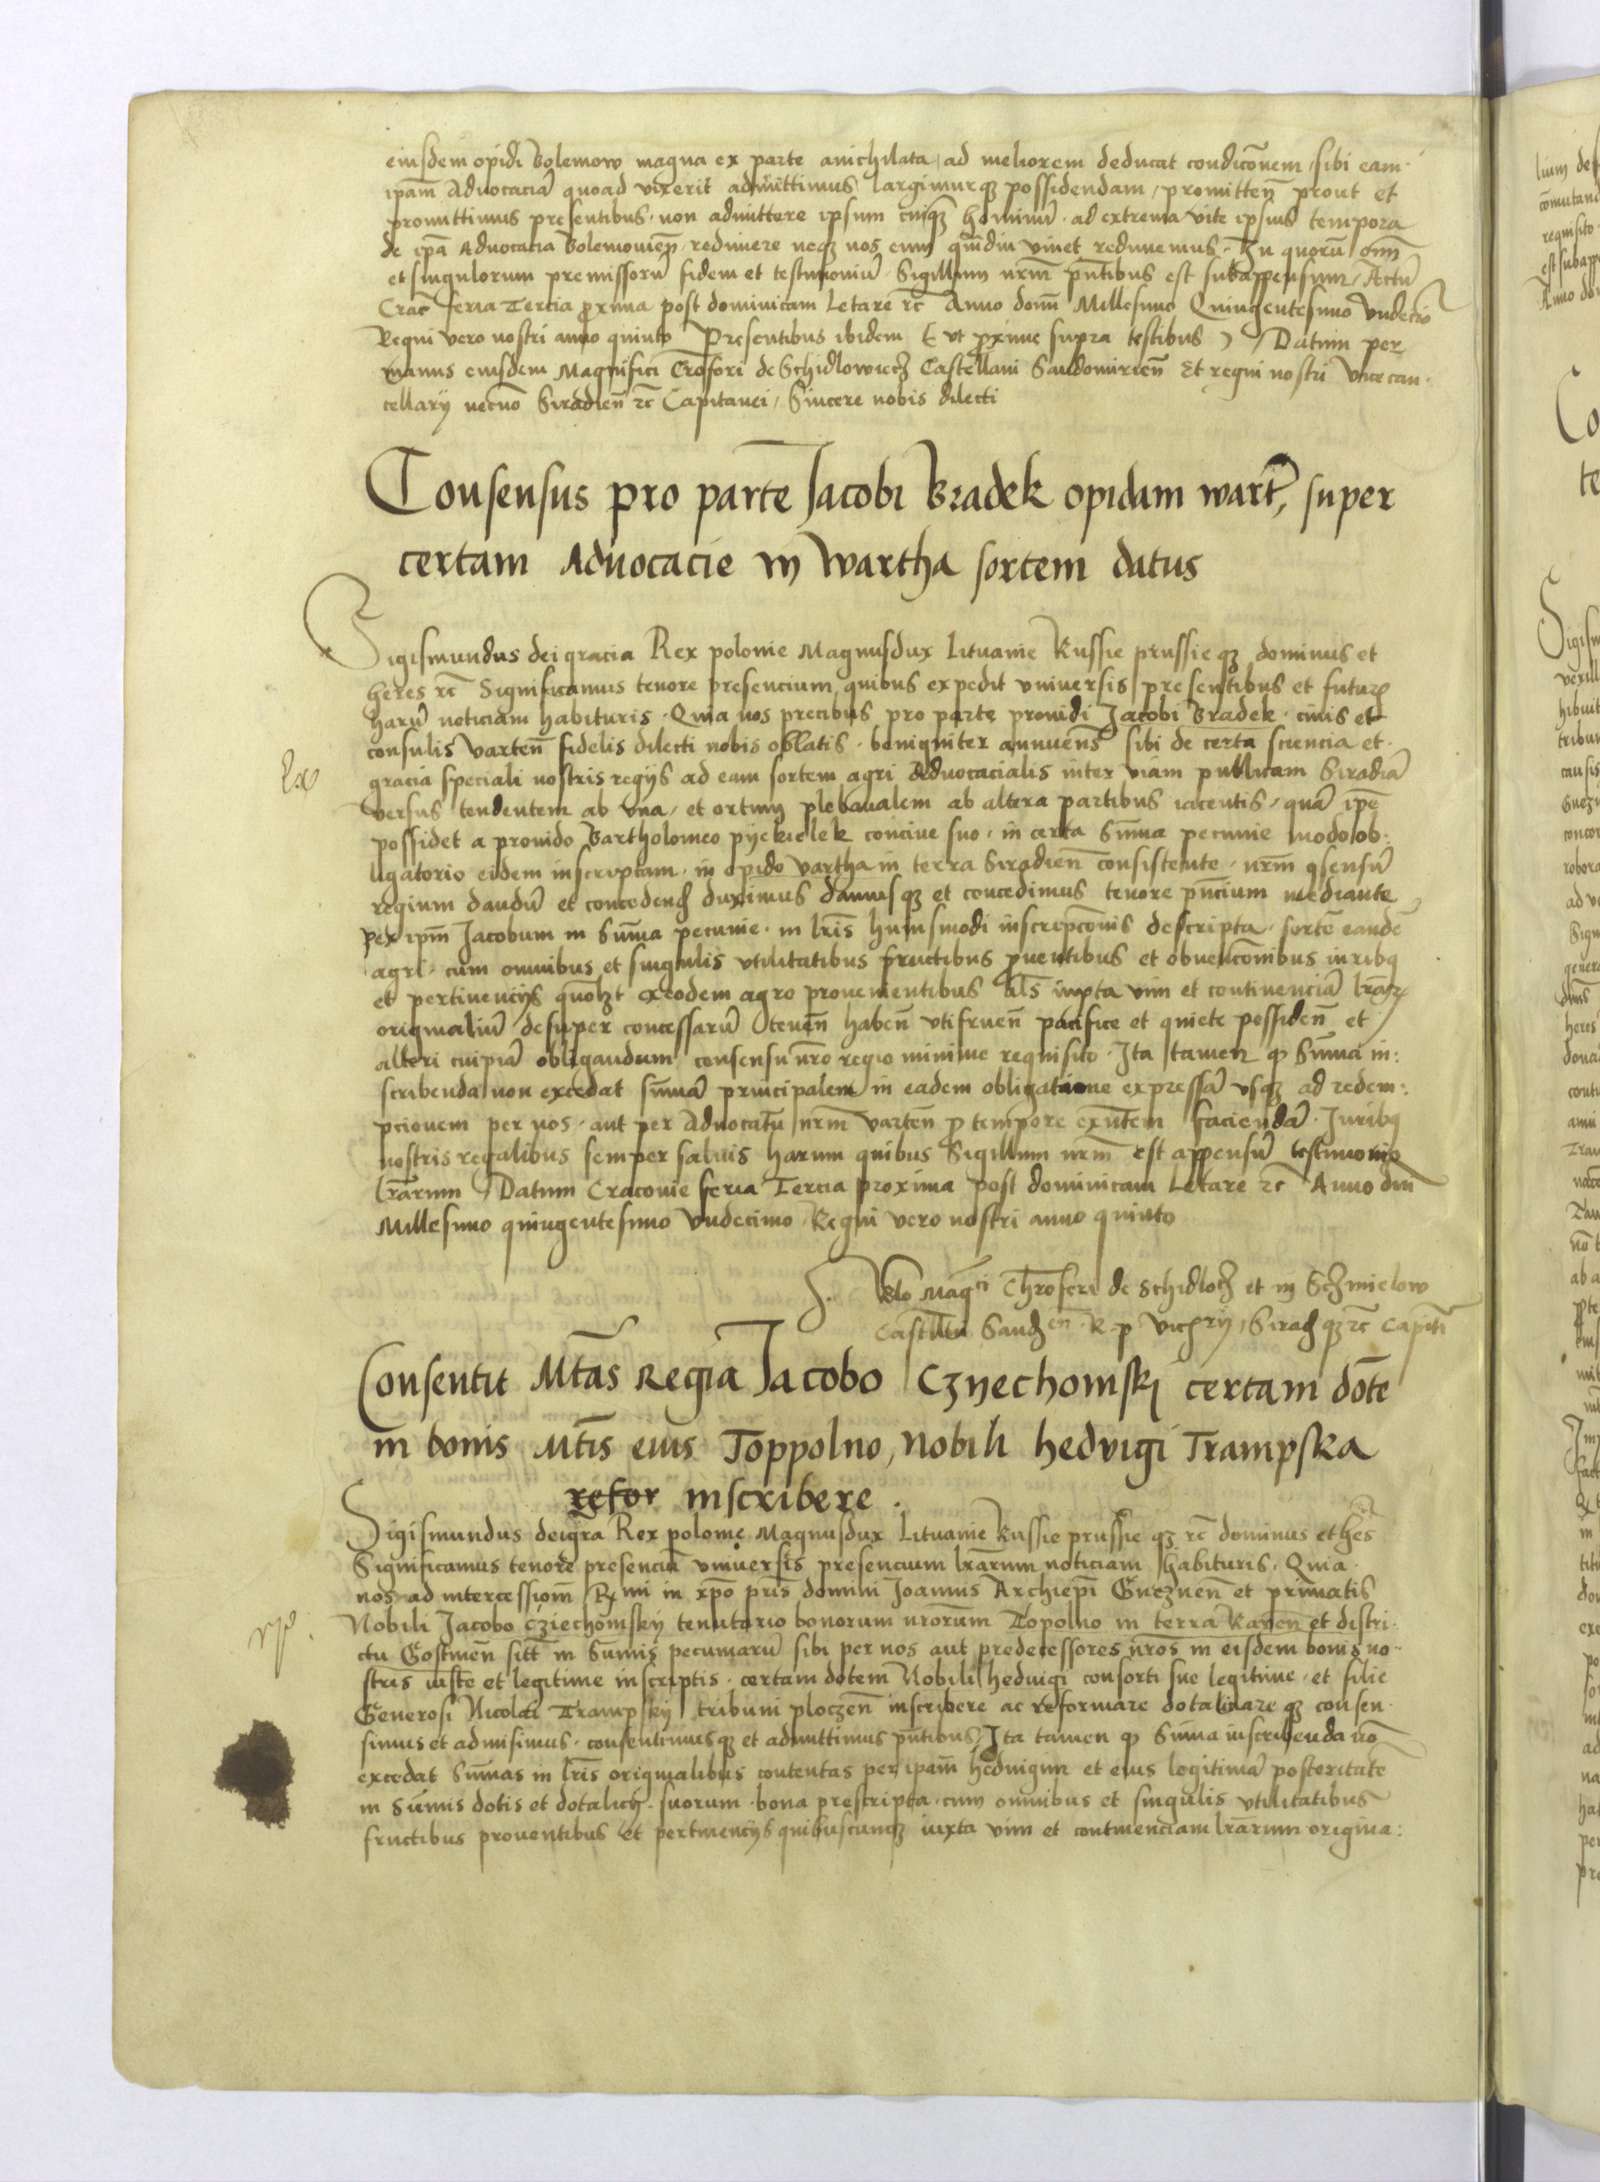 eiusdem opidi Bolemow magna ex parte anichilata, ad meliorem deducat condicōnem, sibi eam
ipam̄ Advocaciā quoad vixerit admittimus largimurqȝ possidendam, promitten̄ prout et
promittimus presentibus, non admittere ipsum cuiqȝ hominū, ad extrema vite ipsius tempora
de ip̄a Advocacia Bolemovien̄, redimere neqȝ nos eum qm̄diu vivet redimemus. In quorū om̄
et singulorum premissorū fidem et testimoniū Sigillum nrm̄ pn̄tibus est subappensum, Actū
Crac̄ feria Tercia proxima post dominicam Letare rc̄ Anno domī Millesimo Quingentesimo Undecīo
Regni vero nostri anno quinto Presentibus ibidem (ut pxime supra testibus) Datum per
manus eiusdem Magnifici Cristofori de Schidlowiecȝ Castellani Sandomirien̄ Et regni nostri vicecan-
cellarij necnō Siradien̄ rc̄ Capitanei, Sincere nobis dilecti
Consensus pro parte Jacobi Bradek opidani wart̄, super
certam Advocacie in Wartha sortem datus
Sigismundus dei gracia Rex polonie Magnusdux Lituanie Russie prussieqȝ dominus et
heres rc̄ Significamus tenore presencium quibus expedit universis presentibus et futur̄
harū noticiam habituris. Quia nos precibus pro parte providi Jacobi Bradek, civis et
consulis varten̄ fidelis dilecti nobis oblatis, benigniter annuen̄s sibi de certa sciencia et
gracia speciali nostris regijs ad eam sortem agri Advocacialis inter viam publicam Siradiā
versus tendentem ab una, et ortum plebanalem ab altera partibus iacentis, quā ip̄e
possidet a provido Bartholomeo pyekielek concive suo, in certa Sum̄a pecunie modo ob:
ligatorio eidem inscriptam, in opido vartha in terra Siradien̄ consistente, nrm̄ ꝯsensū
regium dandū et concedend̄ duximus damusqȝ et concedimus tenore pn̄cium mediante
per ipm̄ Jacobum in Sum̄a pecunie, in lrīs huiusmodi inscripcōnis descripta, sortē eandē
agri, cum omnibus et singulis utilitatibus fructibus proventibus et obvencōnibus iuribq
et pertinencijs quolȝt ex eodem agro provenientibus al̄s iuxta vim et continenciā lrar̄
originaliū desuper concessarū tenen̄ haben̄ utifruen̄ pacifice et quiete possiden̄ et
alteri cuipiā obligandum consensu nr̄o regio minime requisito. Ita tamen ꝙ Sum̄a in:
scribenda non excedat sum̄ā principalem in eadem obligatione expressā usqȝ ad redem:
pcionem per nos, aut per Advocatū nrm̄ varten̄ p tempore exn̄tem faciendā. Juribq
nostris regalibus semper salvis harum quibus Sigillum nrm̄ est appensū testimonio
lr̄arum Datum Cracovie feria Tercia proxima post dominicam Letare rc̄ Anno dn̄i
Millesimo quingentesimo Undecimo, Regni vero nostri anno quinto
Rlo Magci Chr̄oferi de Schidlocȝ et in
Castllni Sanden̄ R p Vicrij, Sirad qȝ rc̄ Capitī
Consentit Mtās Regia Jacobo Czyechomski certam dotē
in bonis Mtīs eius Toppolno, Nobili hedvigi Trampska
refor inscribere.
Sigismundus dei grā Rex polonie Magnusdux Lituanie Russie prussieqȝ rc̄ dominus et hēs
Significamus tenore presenciū universis presencium lrārum noticiam habituris. Quia
nos ad intercessiom̄ Rmi in xpō prīs domini Joannis Archiepī Gneznen̄ et primatis
Nobili Jacobo Cziechomsky tenutario bonorum nrorum Topolno in terra Raven̄ et distri-
ctu Gostinen̄ sitt̄ in Sum̄is pecuniarū sibi per nos aut predecessores nr̄os in eisdem bonis no-
stris iuste et legitime inscriptis, certam dotem Nobili hedvigi consorti sue legitime, et filie
Generosi Nicolai Trampsky tribuni ploczen̄ inscribere ac reformare dotalitareqȝ consen-
simus et admisimus, consentimusqȝ et admittimus pn̄tibus, Ita tamen ꝙ Sum̄a inscribenda nō
excedat Sum̄as in lrīs originalibus contentas per ipam̄ hedvigim et eius legitimā posteritatē
in Sum̄is dotis et dotalicij suorum, bona prescripta, cum omnibus et singulis utilitatibus
fructibus proventibus et pertinencijs quibuscunqȝ iuxta vim et continenciam lrārum origina: